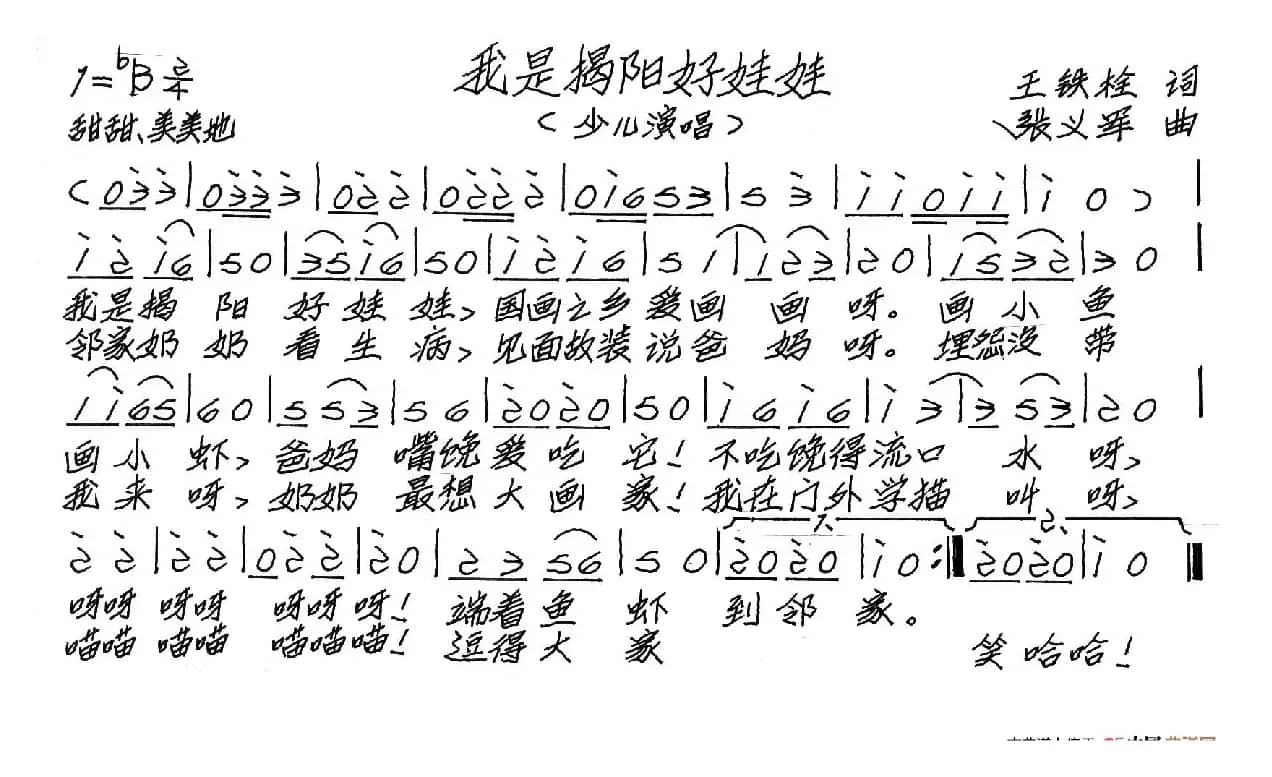 我是揭阳好娃娃
1=♭B 2/4
王铁栓 词
甜甜、美美地
（少儿演唱）
张义军 曲
（0 3 3 | 0 3 3 3 | 0 2 2 | 0 2 2 2 | 0 1 6 5 3 | 5 3 | 1 1 0 1 1 | 1 0 ） |
1 2 1 6 | 5 0 | 3 5 1 6 | 5 0 | 1 2 1 6 | 5 1 | 1 2 3 | 2 0 | 1 5 3 2 | 3 0 |
我是揭 阳 好 娃 娃，国画之乡 爱画 画 呀。画 小 鱼
邻家奶 奶 看 生 病，见面故装 说爸 妈 呀。埋怨没 带
1 1 6 5 | 6 0 | 5 5 3 | 5 6 | 2 0 2 0 | 5 0 | 1 6 1 6 | 1 3 | 3 5 3 | 2 0 |
画 小 虾，爸妈 嘴馋 爱 吃 它！不吃馋得流口 水 呀，
我 来 呀，奶奶 最想 大 画 家！我在门外学描 叫 呀，
2 2 | 2 2 | 0 2 2 | 2 0 | 2 3 5 6 | 5 0 | 1. 2 0 2 0 | 1 0 :‖ 2. 2 0 2 0 | 1 0 ‖
呀呀 呀呀 呀呀 呀！端着 鱼 虾 到 邻 家。
喵喵 喵喵 喵喵喵！逗得 大 家 笑 哈哈！